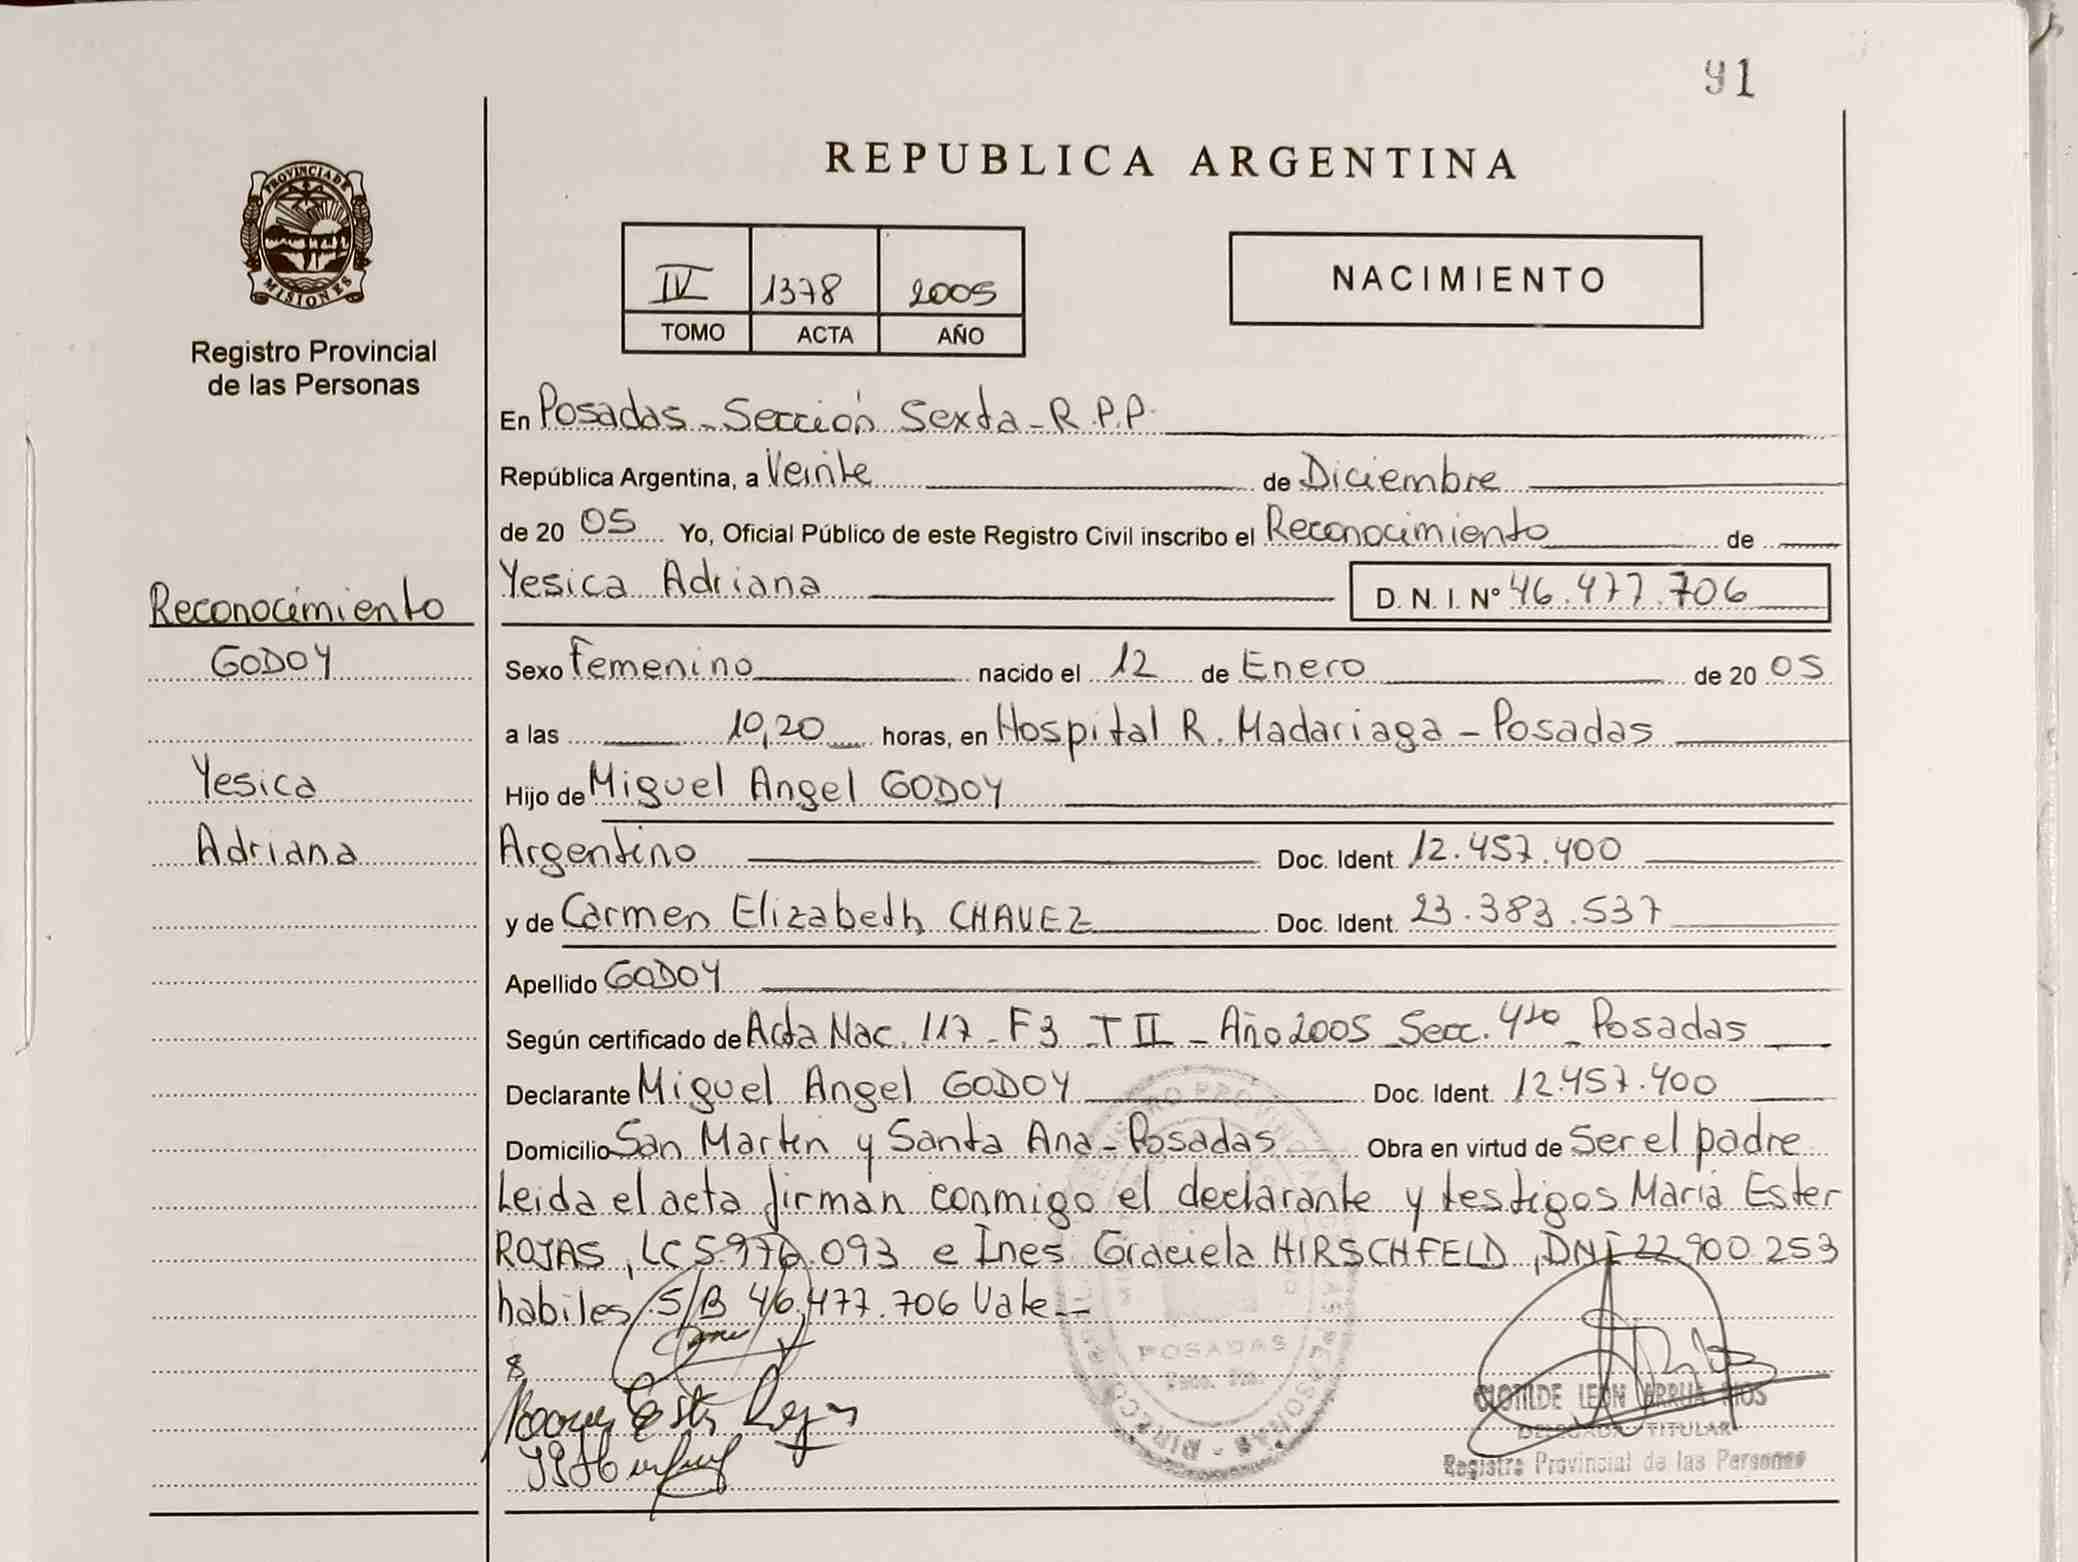 91
REPUBLICA ARGENTINA
PROVINCIA DE
MISIONES
Registro Provincial
de las Personas
IV 1378 2005
TOMO ACTA AÑO
NACIMIENTO
En Posadas - Sección Sexta - R.P.P.
República Argentina, a Veinte de Diciembre
de 20 05 Yo, Oficial Público de este Registro Civil inscribo el Reconocimiento de
Yesica Adriana D. N. I. Nº 46.477.706
Reconocimiento
GODOY
Yesica
Adriana
Sexo Femenino nacido el 12 de Enero de 20 05
a las 10,20 horas, en Hospital R. Madariaga - Posadas
Hijo de Miguel Angel GODOY
Argentino Doc. Ident. 12.457.400
y de Carmen Elizabeth CHAVEZ Doc. Ident. 23.383.537
Apellido GODOY
Según certificado de Acta Nac. 117 - F 3 - T II - Año 2005 Secc. 4ta - Posadas
Declarante Miguel Angel GODOY Doc. Ident. 12.457.400
Domicilio San Martin y Santa Ana - Posadas Obra en virtud de Ser el padre
Leida el acta firman conmigo el declarante y testigos Maria Ester
ROJAS, LC 5.976.093 e Ines Graciela HIRSCHFELD, DNI 22.900.253
habiles. S/B 46.477.706 Vale. -
POSADAS
CLOTILDE LEON ARRUA RIOS
DELEGADA TITULAR
Registro Provincial de las Personas